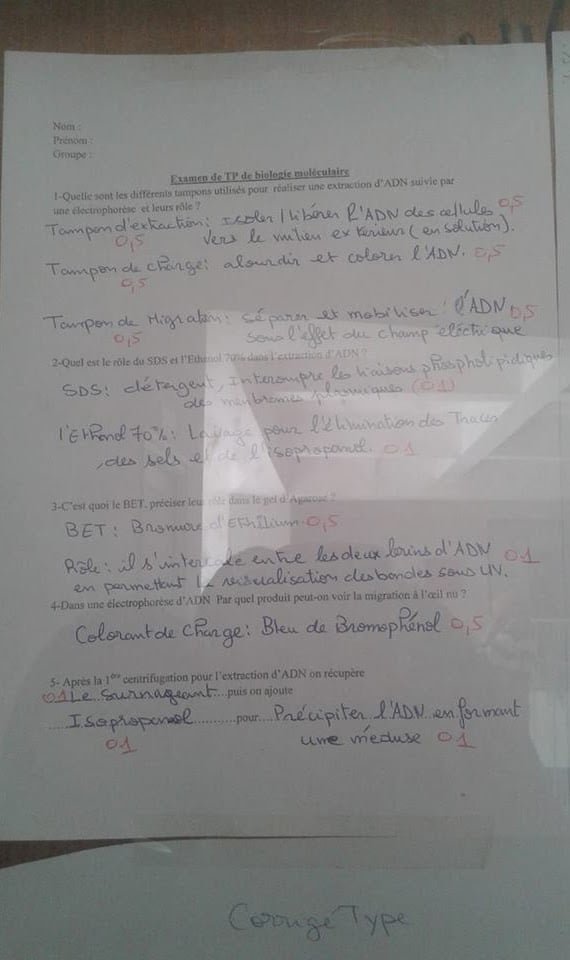 Nom :
Prénom :
Groupe :
Examen de TP de biologie moléculaire
1-Quelle sont les différents tampons utilisés pour réaliser une extraction d'ADN suivie par
une électrophorèse et leurs rôle ?
Tampon d'extraction : Isoler / libérer l'ADN des cellules 0,5
0,5 vers le milieu extérieur (en solution).
Tampon de charge : alourdir et colorer l'ADN. 0,5
0,5
Tampon de Migration : Séparer et mobiliser l'ADN 0,5
0,5 sous l'effet du champ électrique
2-Quel est le rôle du SDS et l'Ethanol 70% dans l'extraction d'ADN ?
SDS : détergent, Interrompre les liaisons phospholipidiques
des membranes plasmiques (01)
l'Ethanol 70% : Lavage pour l'élimination des Traces
des sels et de l'isopropanol. 01
3-C'est quoi le BET, préciser leur rôle dans le gel d'Agarose ?
BET : Bromure d'Ethilium. 0,5
Rôle : il s'intercale entre les deux brins d'ADN 01
en permettant la visualisation des bandes sous UV.
4-Dans une électrophorèse d'ADN Par quel produit peut-on voir la migration à l'œil nu ?
Colorant de charge : Bleu de Bromophénol 0,5
5- Après la 1ère centrifugation pour l'extraction d'ADN on récupère
01 Le Surnageant...puis on ajoute
.....Isopropanol...........pour....Précipiter l'ADN en formant
01 une méduse 01
Corrigé Type